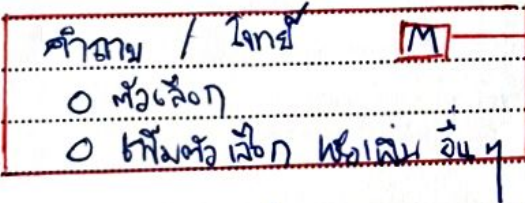 คำถาม / โจทย์ M
○ ตัวเลือก
○ เพิ่มตัวเลือก หรือเพิ่ม อื่นๆ